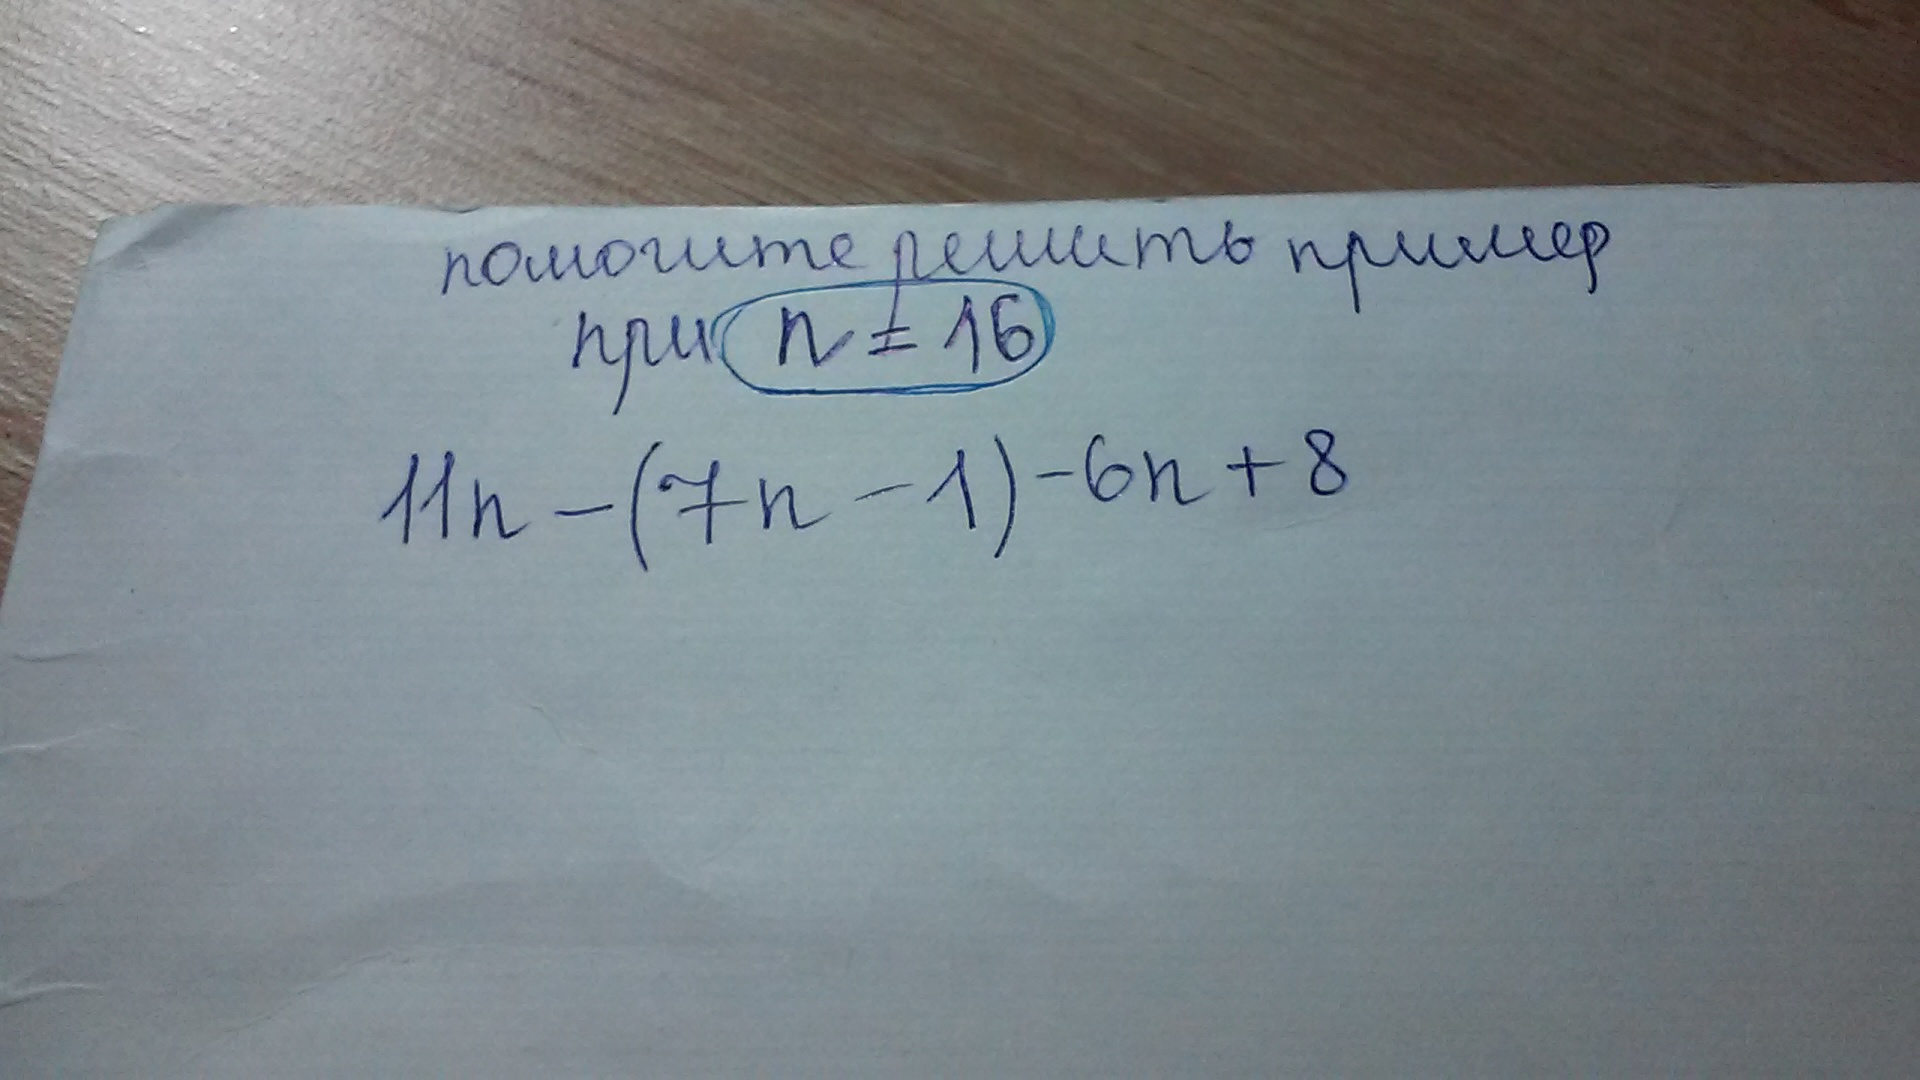 помогите решить пример
при n = 16
11n - (7n - 1) - 6n + 8